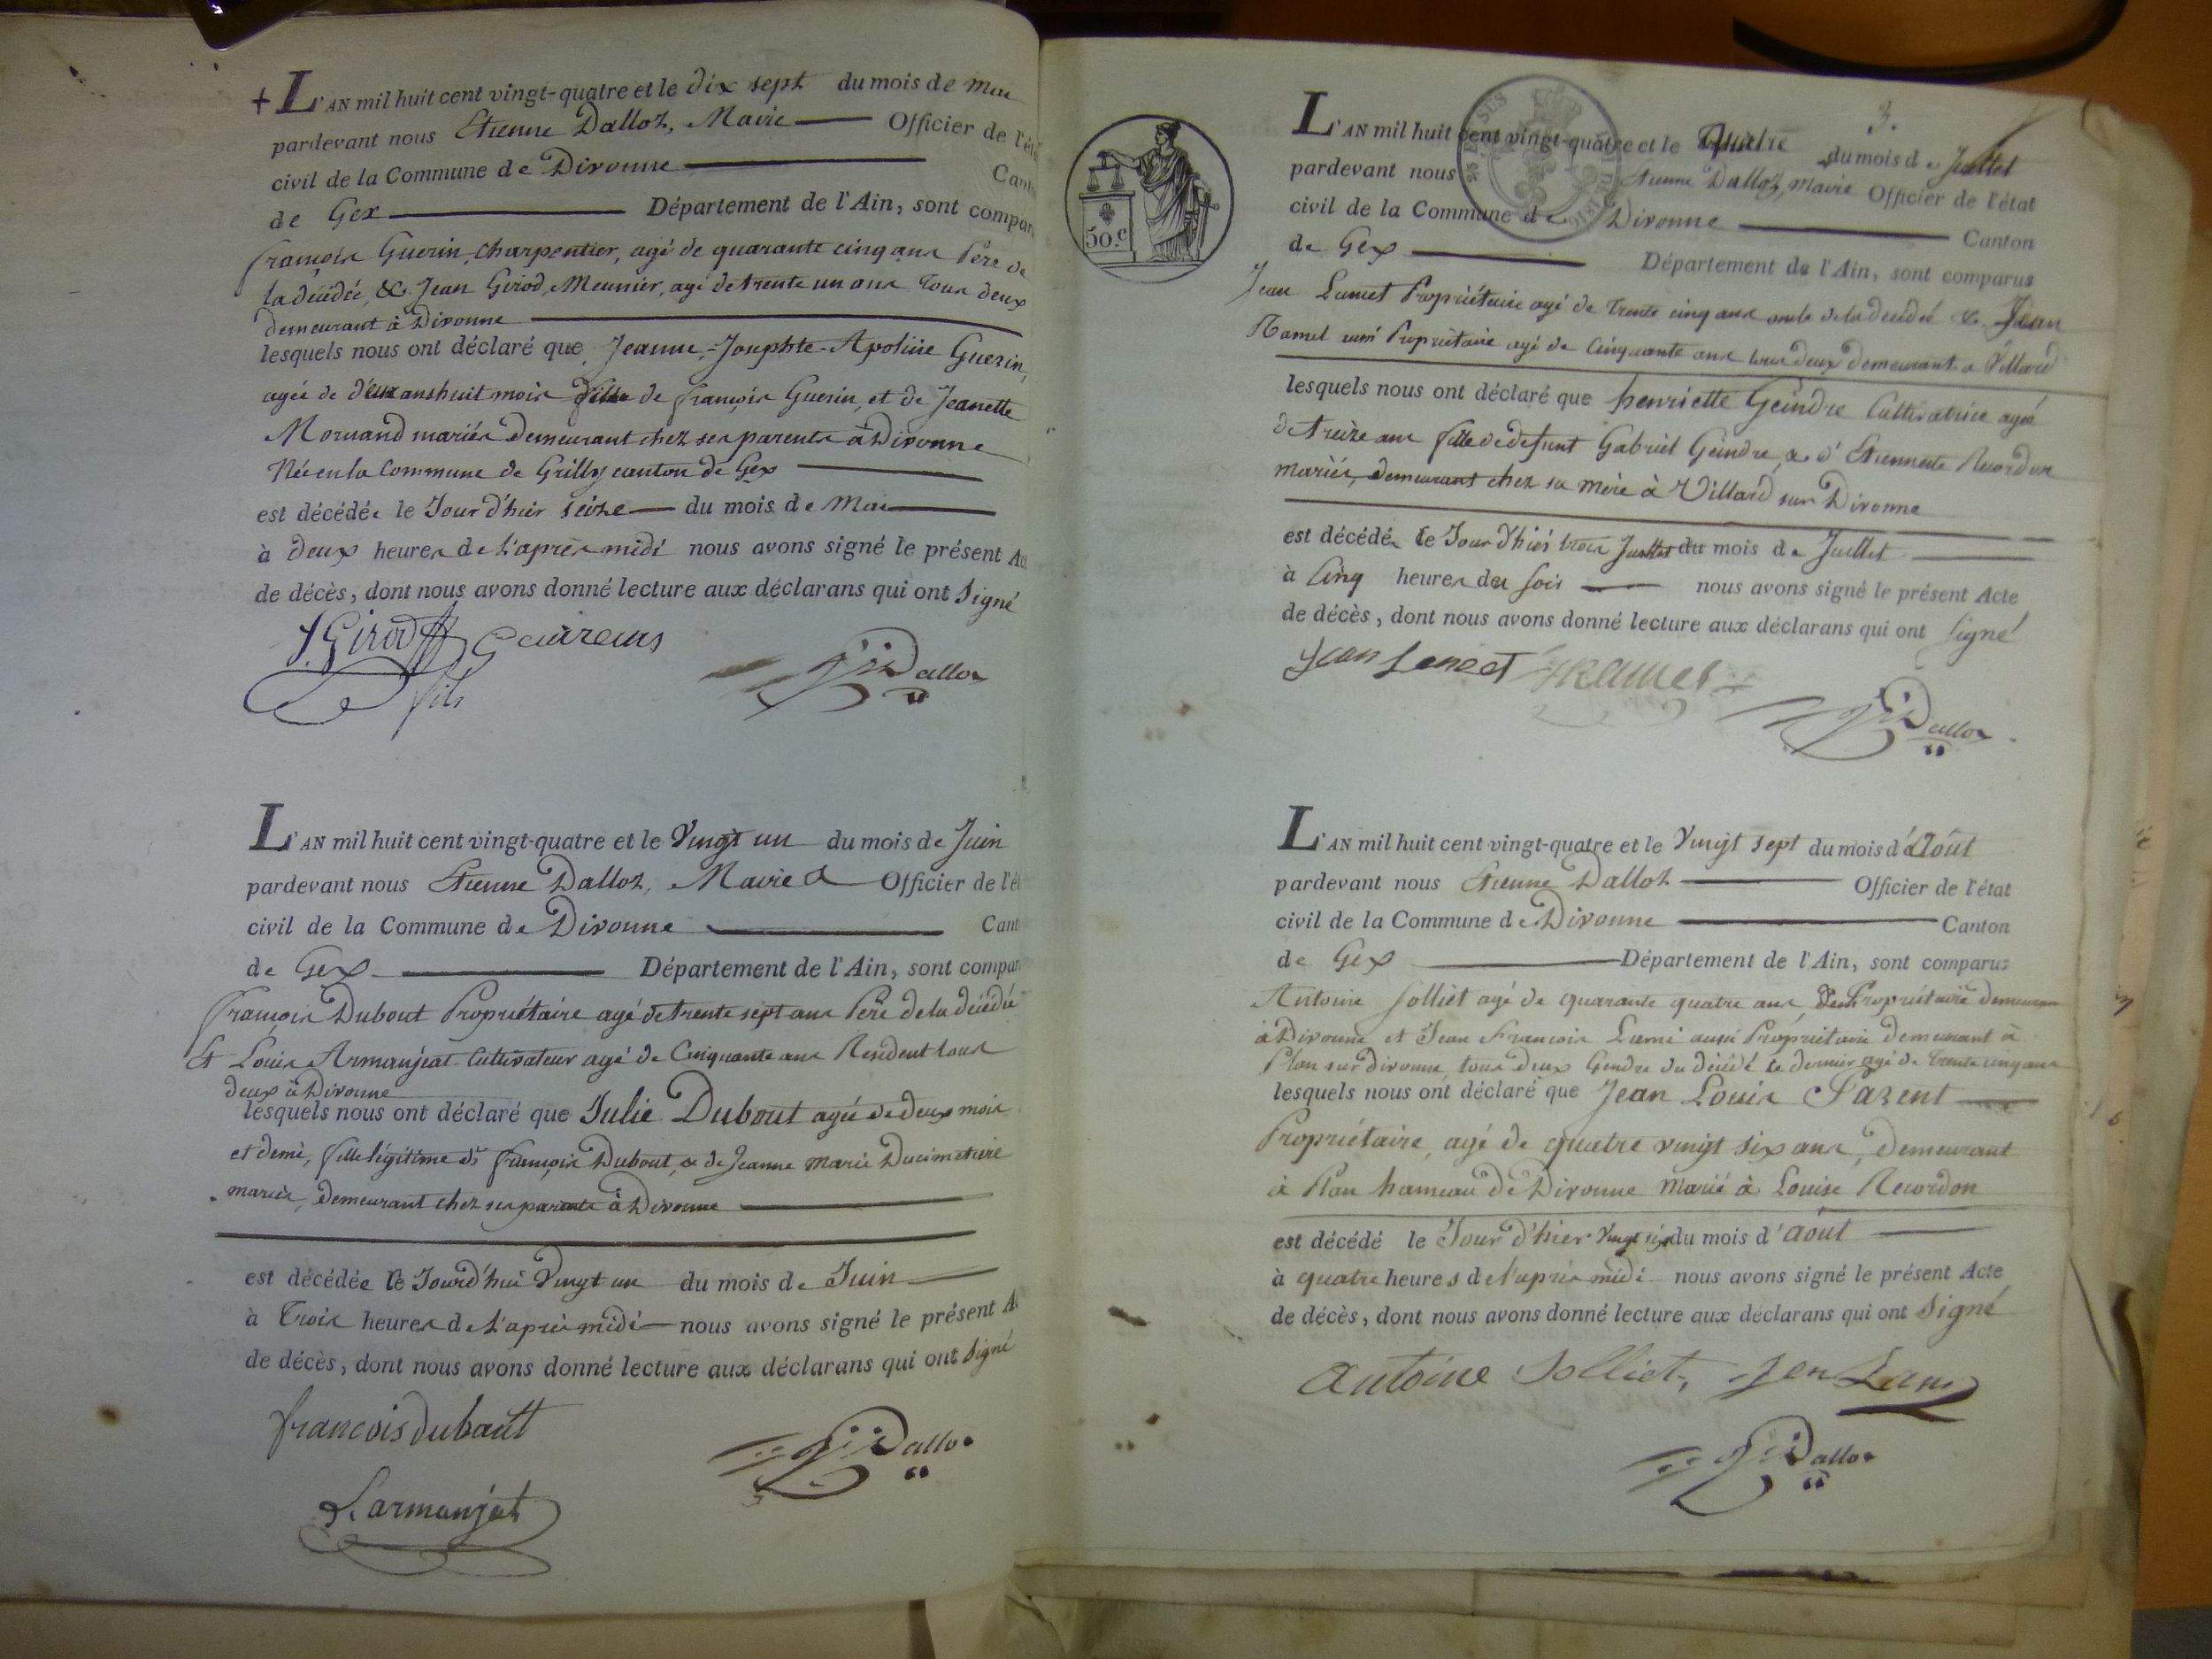 + L'AN mil huit cent vingt-quatre et le dix sept du mois de mai
pardevant nous Etienne Dalloz, Maire Officier de l'ét
civil de la Commune de Divonne Cant
de Gex Département de l'Ain, sont compar
françois Guerin, charpentier, agé de quarante cinq ans Père de
la décédée, & Jean Girod, Meunier, agé de trente un ans Tous deux
demeurant à Divonne
lesquels nous ont déclaré que Jeanne-Josephte-Apoline Guerin,
agée de deux ans huit mois fille de françois Guerin, et de Jeanette
Moruand mariés demeurant chez ses parents à Divonne
Née en la Commune de Grilly canton de Gex
est décédée le Jour d'hier seize du mois de Mai
à deux heures de l'après midi nous avons signé le présent Ac
de décès, dont nous avons donné lecture aux déclarans qui ont signé
J. Girod Gueireins
fils
Dalloz
L'AN mil huit cent vingt-quatre et le Vingt un du mois de Juin
pardevant nous Etienne Dalloz, Maire Officier de l'ét
civil de la Commune de Divonne Cant
de Gex Département de l'Ain, sont compar
françois Dubout Propriétaire agé de trente sept ans Père de la décédée
Et Louis Armanjeat Cultivateur agé de Cinquante ans Résident tous
deux à Divonne
lesquels nous ont déclaré que Julie Dubout agée de deux mois
et demi, fille légitime de françois Dubout, & de Jeanne Marie Ducimetiere
mariés, demeurant chez ses parents à Divonne
est décédée le Jourd'hui Vingt un du mois de Juin
à Trois heures de l'après midi nous avons signé le présent A
de décès, dont nous avons donné lecture aux déclarans qui ont signé
francois dubautt
L. armanjat
Dalloz
3.
50.c
L'AN mil huit cent vingt-quatre et le Quatre du mois de Juillet
pardevant nous Etienne Dalloz, maire Officier de l'état
civil de la Commune de Divonne Canton
de Gex Département de l'Ain, sont comparus
Jean Lumet Propriétaire agé de trente cinq ans oncle de la décédée & Jean
Ramel aussi Propriétaire agé de Cinquante ans tous deux demeurant à Villard
lesquels nous ont déclaré que henriette Geindre Cultivatrice agée
de treize ans fille de defunt Gabriel Geindre, & d'Etiennette Recordon
mariés, demeurant chez sa mère à Villard sur Divonne
est décédée le Jour d'hier trois Juillet du mois de Juillet
à Cinq heures du soir nous avons signé le présent Acte
de décès, dont nous avons donné lecture aux déclarans qui ont signé
Jean Ramel
Dalloz
L'AN mil huit cent vingt-quatre et le Vingt sept du mois d'Août
pardevant nous Etienne Dalloz Officier de l'état
civil de la Commune de Divonne Canton
de Gex Département de l'Ain, sont comparus
Antoine Solliet agé de quarante quatre ans, Propriétaire demeurant
à Divonne et Jean François Lami aussi Propriétaire demeurant à
Plan sur divonne, tous deux Gendre du décédé le dernier agé de trente cinq ans
lesquels nous ont déclaré que Jean Louis Parent
Propriétaire, agé de quatre vingt six ans, demeurant
à Plan hameau de Divonne Marié à Louise Recordon
est décédé le Jour d'hier Vingt six du mois d'août
à quatre heures de l'après midi nous avons signé le présent Acte
de décès, dont nous avons donné lecture aux déclarans qui ont signé
antoine Solliet, Jen Lami
Dalloz